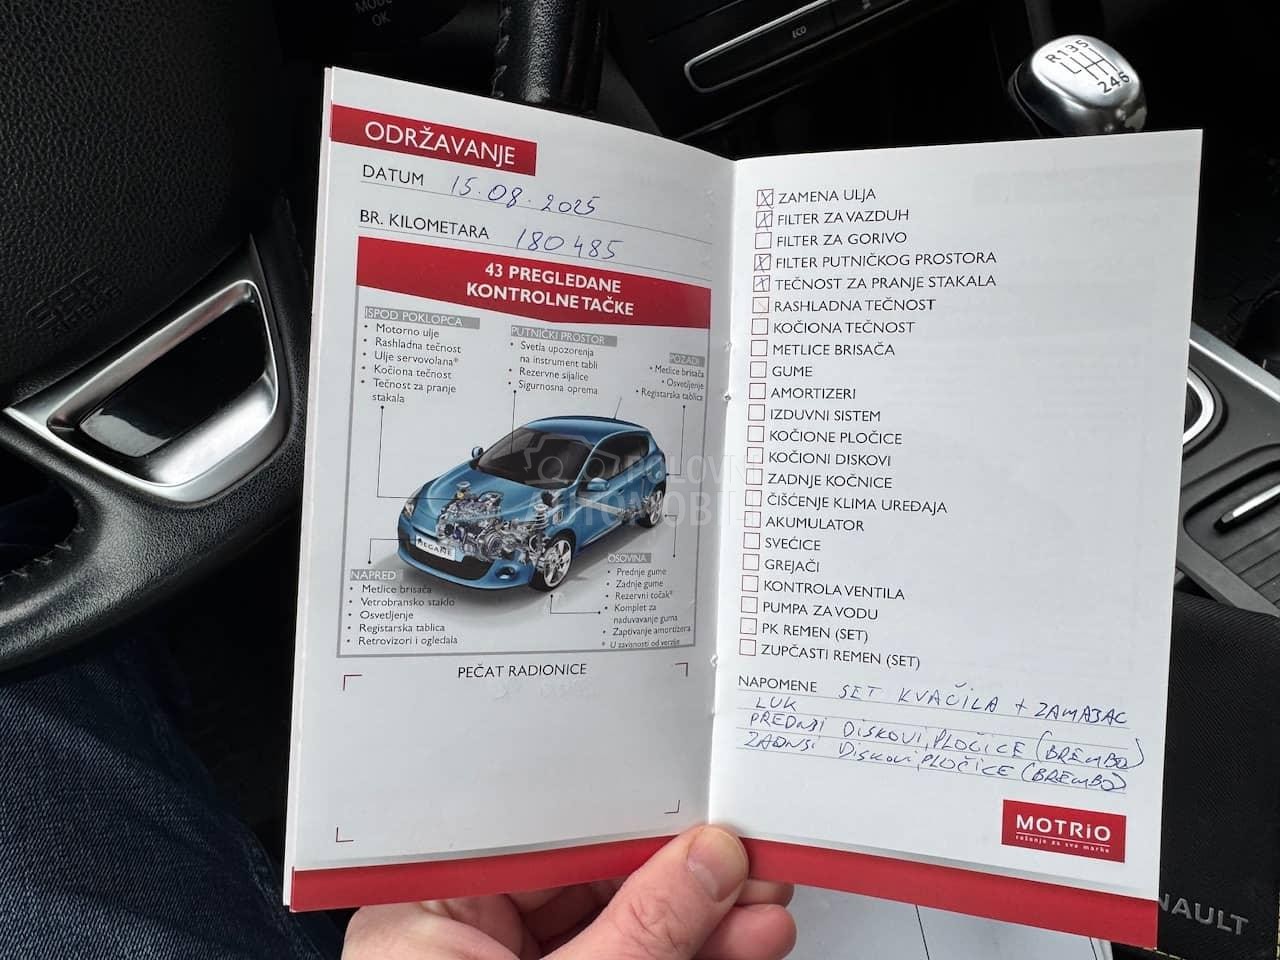 MODE
OK
ECO
R135
246
ODRŽAVANJE
DATUM 15.08.2025
BR. KILOMETARA 180485
43 PREGLEDANE
KONTROLNE TAČKE
ISPOD POKLOPCA
• Motorno ulje
• Rashladna tečnost
• Ulje servovolana*
• Kočiona tečnost
• Tečnost za pranje
stakala
PUTNIČKI PROSTOR
• Svetla upozorenja
na instrument tabli
• Rezervne sijalice
• Sigurnosna oprema
POZADI
• Metlice brisača
• Osvetljenje
• Registarska tablica
POLOVNI
AUTOMOBILI
MEGANE
NAPRED
• Metlice brisača
• Vetrobransko staklo
• Osvetljenje
• Registarska tablica
• Retrovizori i ogledala
OSOVINA
• Prednje gume
• Zadnje gume
• Rezervni točak*
• Komplet za
naduvavanje guma
• Zaptivanje amortizera
* U zavisnosti od verzije
PEČAT RADIONICE
X ZAMENA ULJA
X FILTER ZA VAZDUH
FILTER ZA GORIVO
X FILTER PUTNIČKOG PROSTORA
X TEČNOST ZA PRANJE STAKALA
RASHLADNA TEČNOST
KOČIONA TEČNOST
METLICE BRISAČA
GUME
AMORTIZERI
IZDUVNI SISTEM
KOČIONE PLOČICE
KOČIONI DISKOVI
ZADNJE KOČNICE
ČIŠĆENJE KLIMA UREĐAJA
AKUMULATOR
SVEĆICE
GREJAČI
KONTROLA VENTILA
PUMPA ZA VODU
PK REMEN (SET)
ZUPČASTI REMEN (SET)
NAPOMENE SET KVAČILA + ZAMAJAC
LUK
PREDNJI DISKOVI, PLOČICE (BREMBO)
ZADNJI DISKOVI, PLOČICE (BREMBO)
MOTRiO
rešenje za sve marke
NAULT